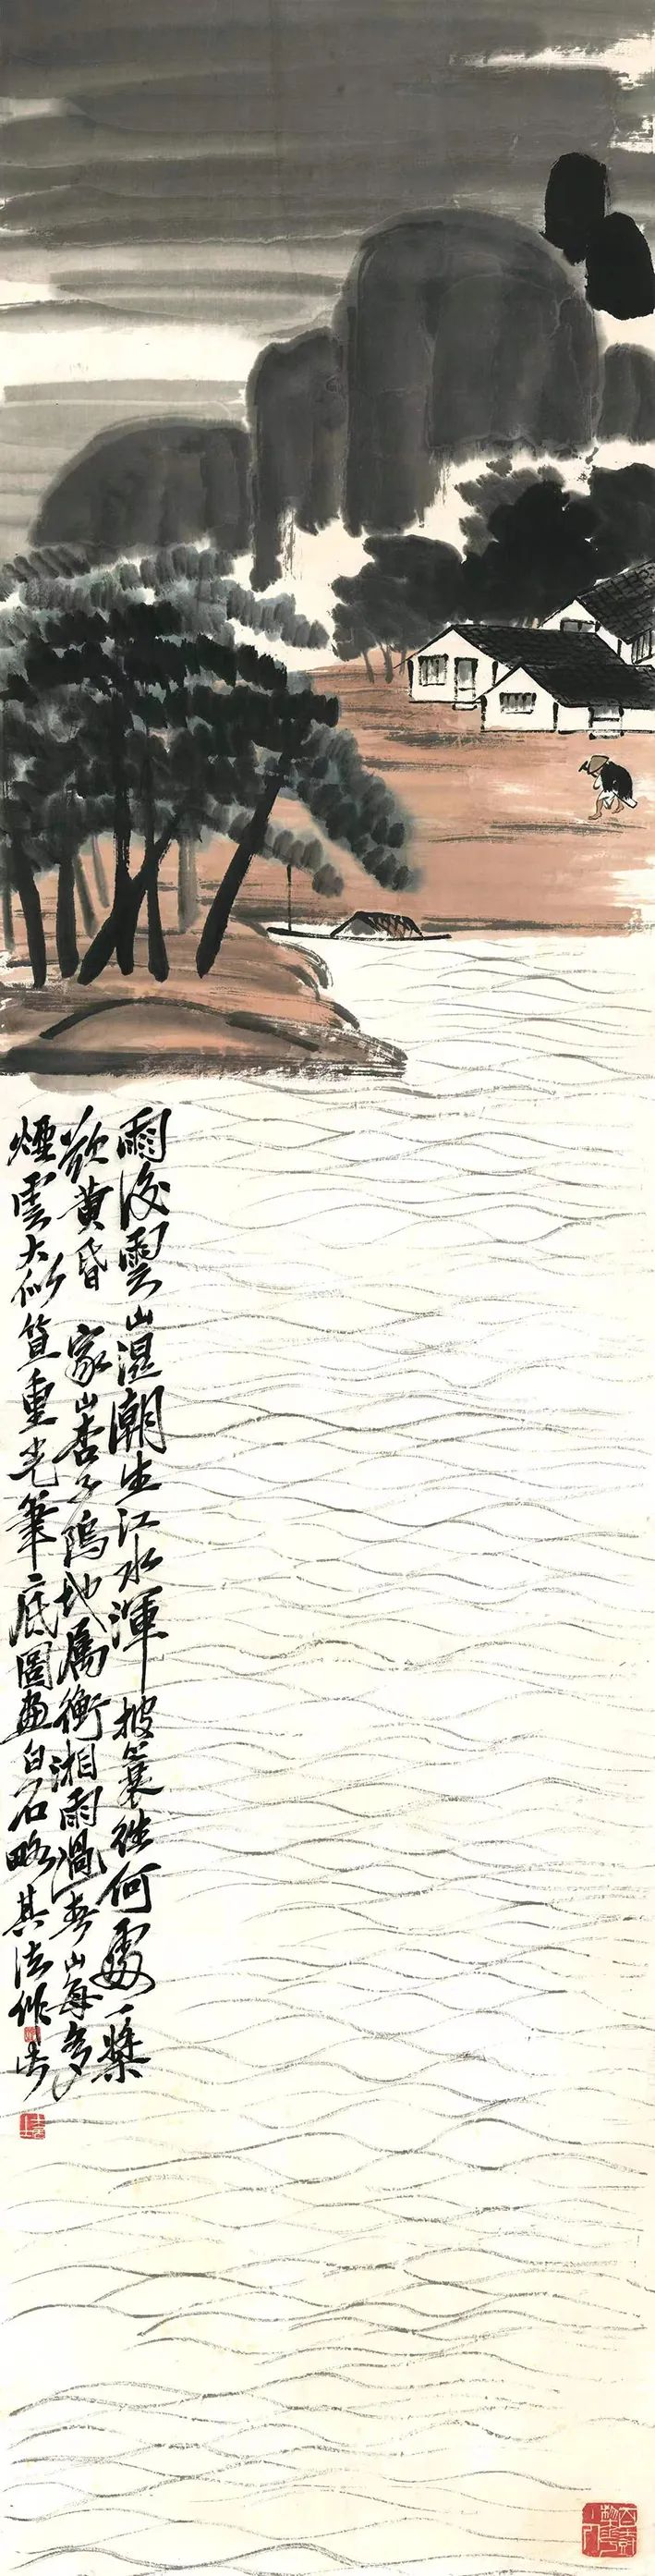 雨後雲山湿潮生江水渾 披蓑往何處一槳
歇黃昏 家山杏子塢地屬衡湘雨過春山每多
煙雲大似笪重光筆底圖畫白石略其法作